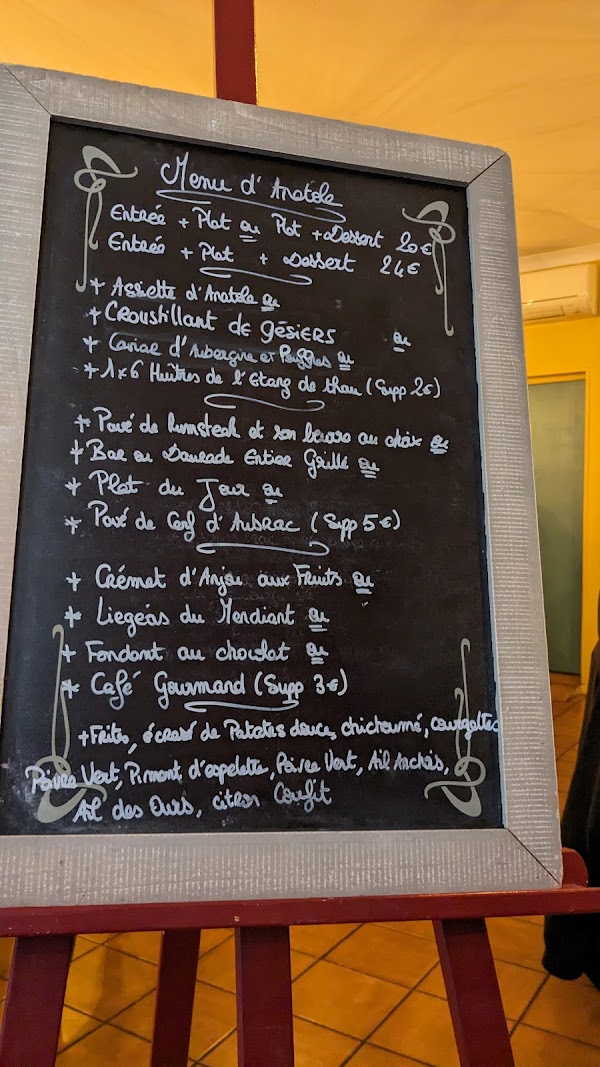 Menu d'Anatole
Entrée + Plat ou Plat + Dessert 20€
Entrée + Plat + Dessert 24€
+ Assiette d'Anatole ou
+ CROUSTILLANT DE GÉSIERS ou
+ Caviar d'Aubergine et ou
+ 1x6 Huitres de l'Etang de thau (Supp 2€)
+ Pavé de Rumsteak et son beurre au choix ou
+ Bar ou Daurade Entier Grillé ou
+ Plat du Jour ou
+ Pavé de Cerf d'Aubrac (Supp 5€)
+ Crémet d'Anjou aux Fruits ou
+ Liegeois du Mendiant ou
+ Fondant au chocolat ou
+ Café Gourmand (Supp 3€)
+ Frites, écrasé de Patates douce, chichoumé, courgettes
Poivre Vert, Piment d'espelette, Poivre Vert, Ail Anchois,
Ail des Ours, citron Confit